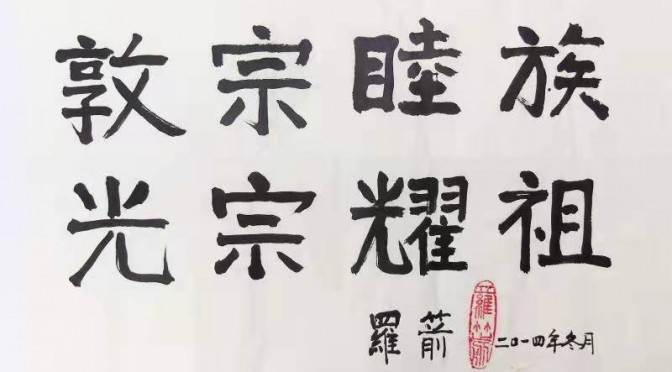 敦宗睦族
光宗耀祖
羅箭 二〇一四年冬月
羅箭